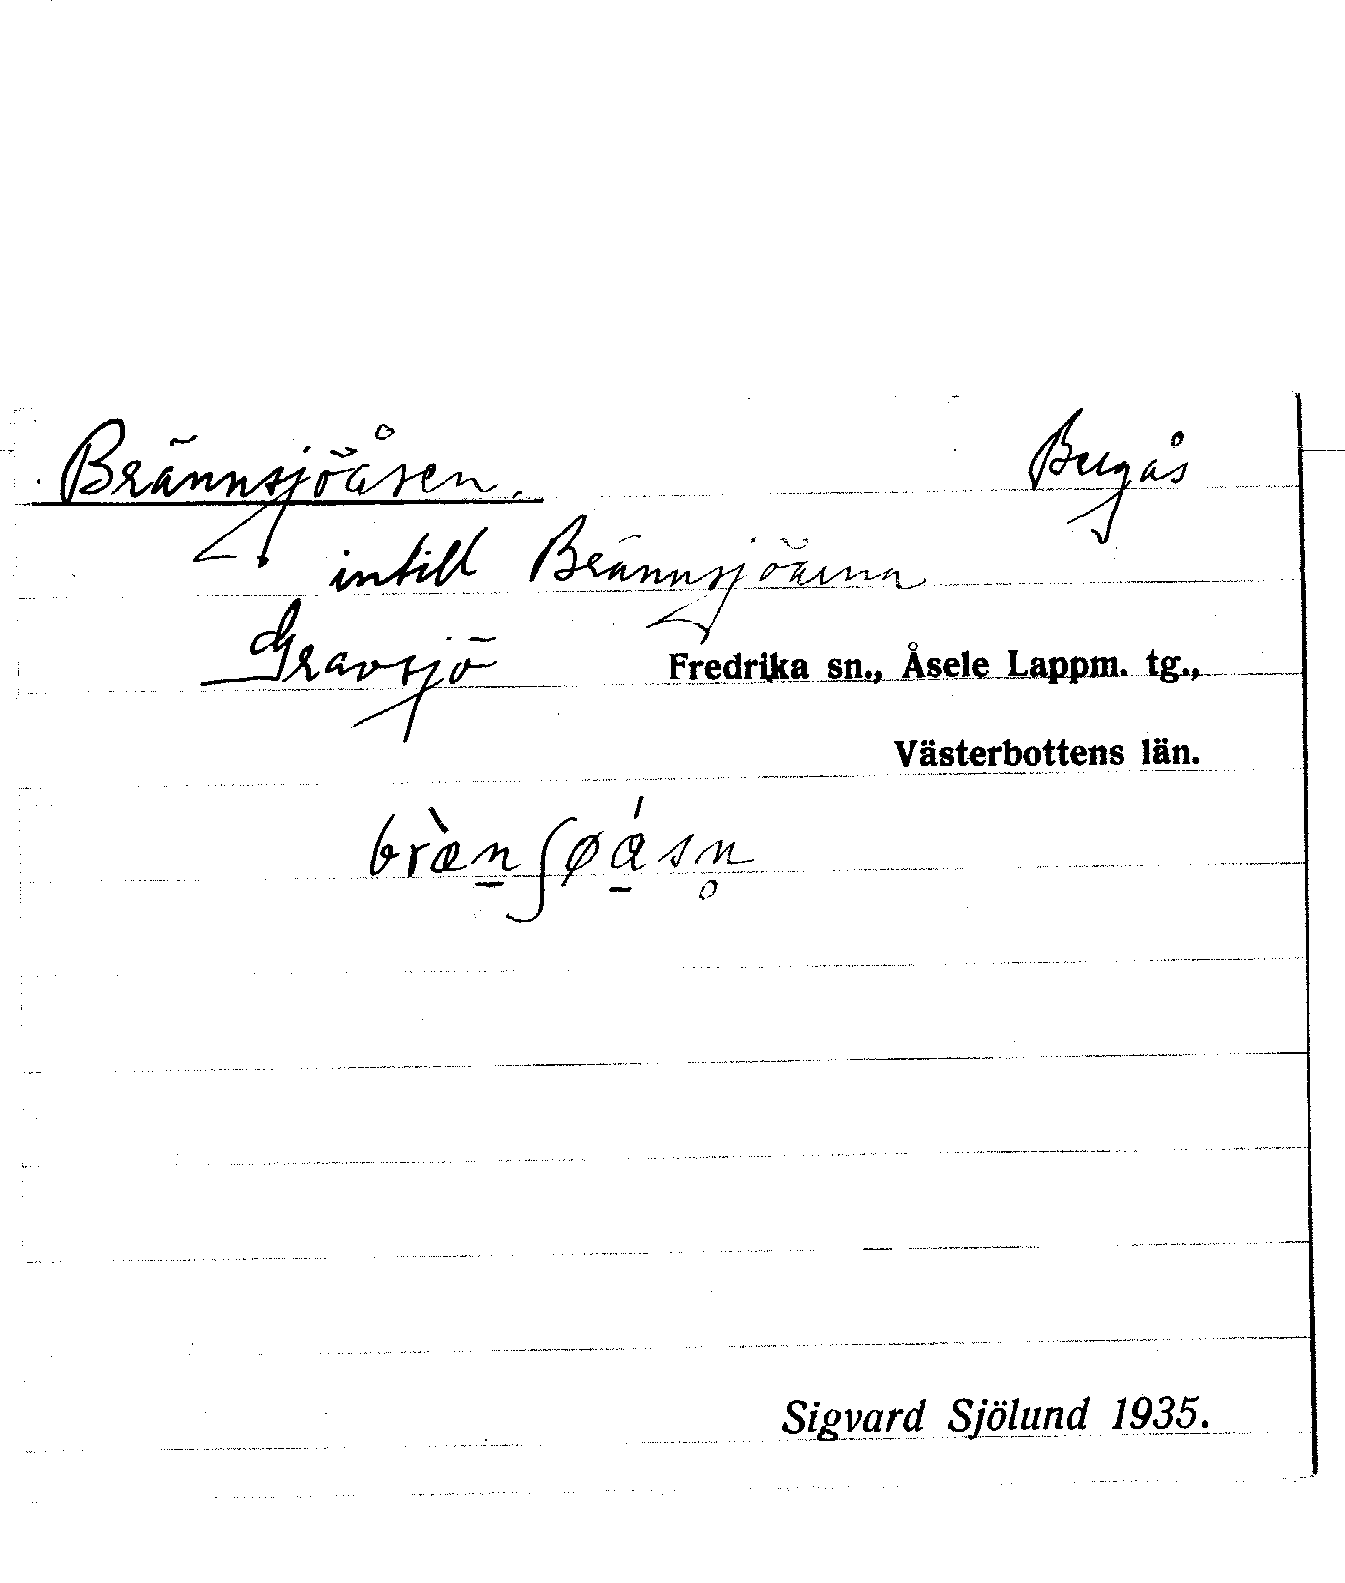 Brännsjöåsen. Bergås
intill Brännsjöarna
Gravsjö Fredrika sn., Åsele Lappm. tg.,
Västerbottens län.
bræ̀n̠ʃøá̠sn̥
Sigvard Sjölund 1935.